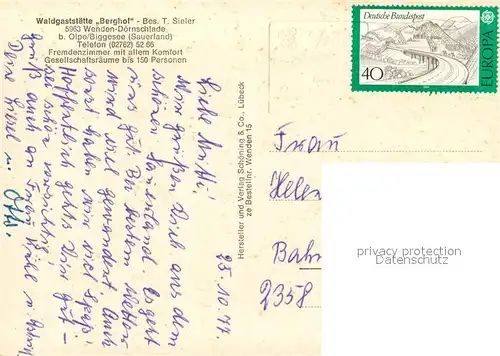 Waldgaststätte „Berghof" - Bes. T. Sieler
5963 Wenden-Dörnschlade
b. Olpe/Biggesee (Sauerland)
Telefon (02762) 52 66
Fremdenzimmer mit allem Komfort
Gesellschaftsräume bis 150 Personen
Deutsche Bundespost
40
EUROPA
Hersteller und Verlag Schöning & Co., Lübeck
ze Bestellnr. Wenden 15
25.10.77.
Liebe Mutti!
Wir grüßen Dich aus dem
schönen Sauerland. Es geht
uns gut. Bei bestem Wetter
wird viel gewandert. Auch
sonst haben wir viel Spaß.
Hoffentlich geht's Dir gut –
sei schön vorsichtig!
Grüß auch an Frau
Deine Liesel u. Otti.
Frau
Helen
Bahn
2358
privacy protection
Datenschutz